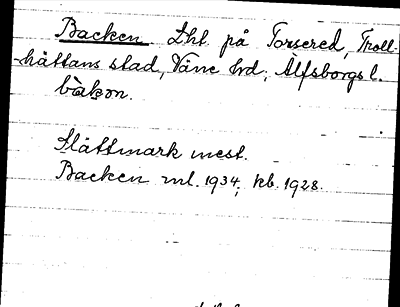 Backen Lht på Torsered, Troll-
hättans stad, Väne hd, Älfsborgs l.
bàkən.
Slättmark mest.
Backen ml. 1934, kb. 1928.